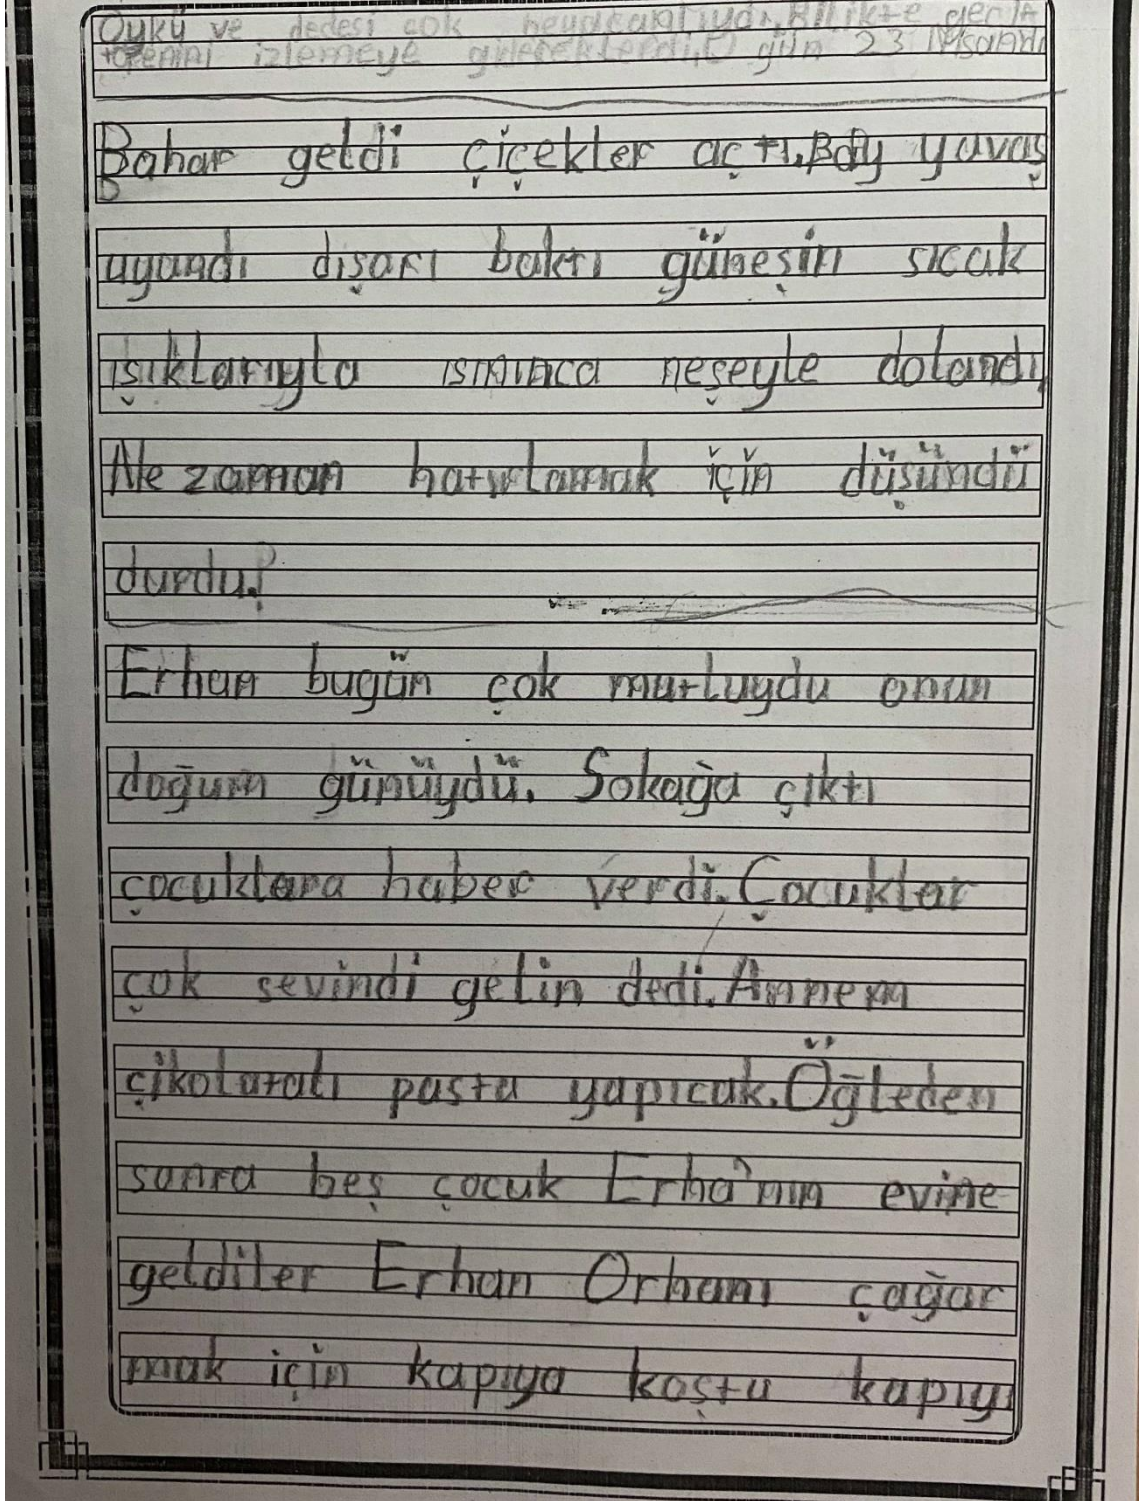 Öykü ve dedesi çok heyecanlıydı. Birlikte
törenini izlemeye gideceklerdi. O gün 23 Nisandı
Bahar geldi çiçekler açtı. Bay yavaş
uyandı dışarı baktı güneşin sıcak
ışıklarıyla ısınınca neşeyle dolandı
Ne zaman hatırlamak için düşündü
durdu.
Erhan bugün çok mutluydu onun
doğum günüydü. Sokağa çıktı
çocuklara haber verdi. Çocuklar
çok sevindi gelin dedi. Annem
çikolatalı pasta yapıcak. Öğleden
sonra beş çocuk Erha'nın evine
geldiler Erhan Orhanı çağar
mak için kapıya koştu kapıyı